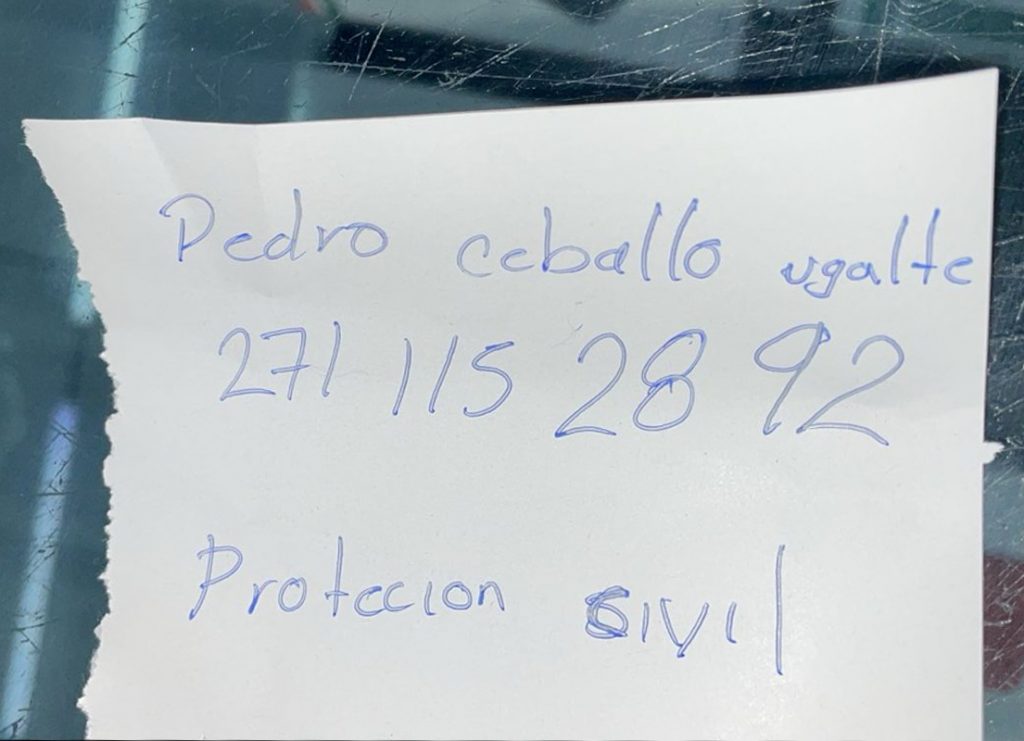 Pedro ceballo ugalte
271 115 28 92
Proteccion civil